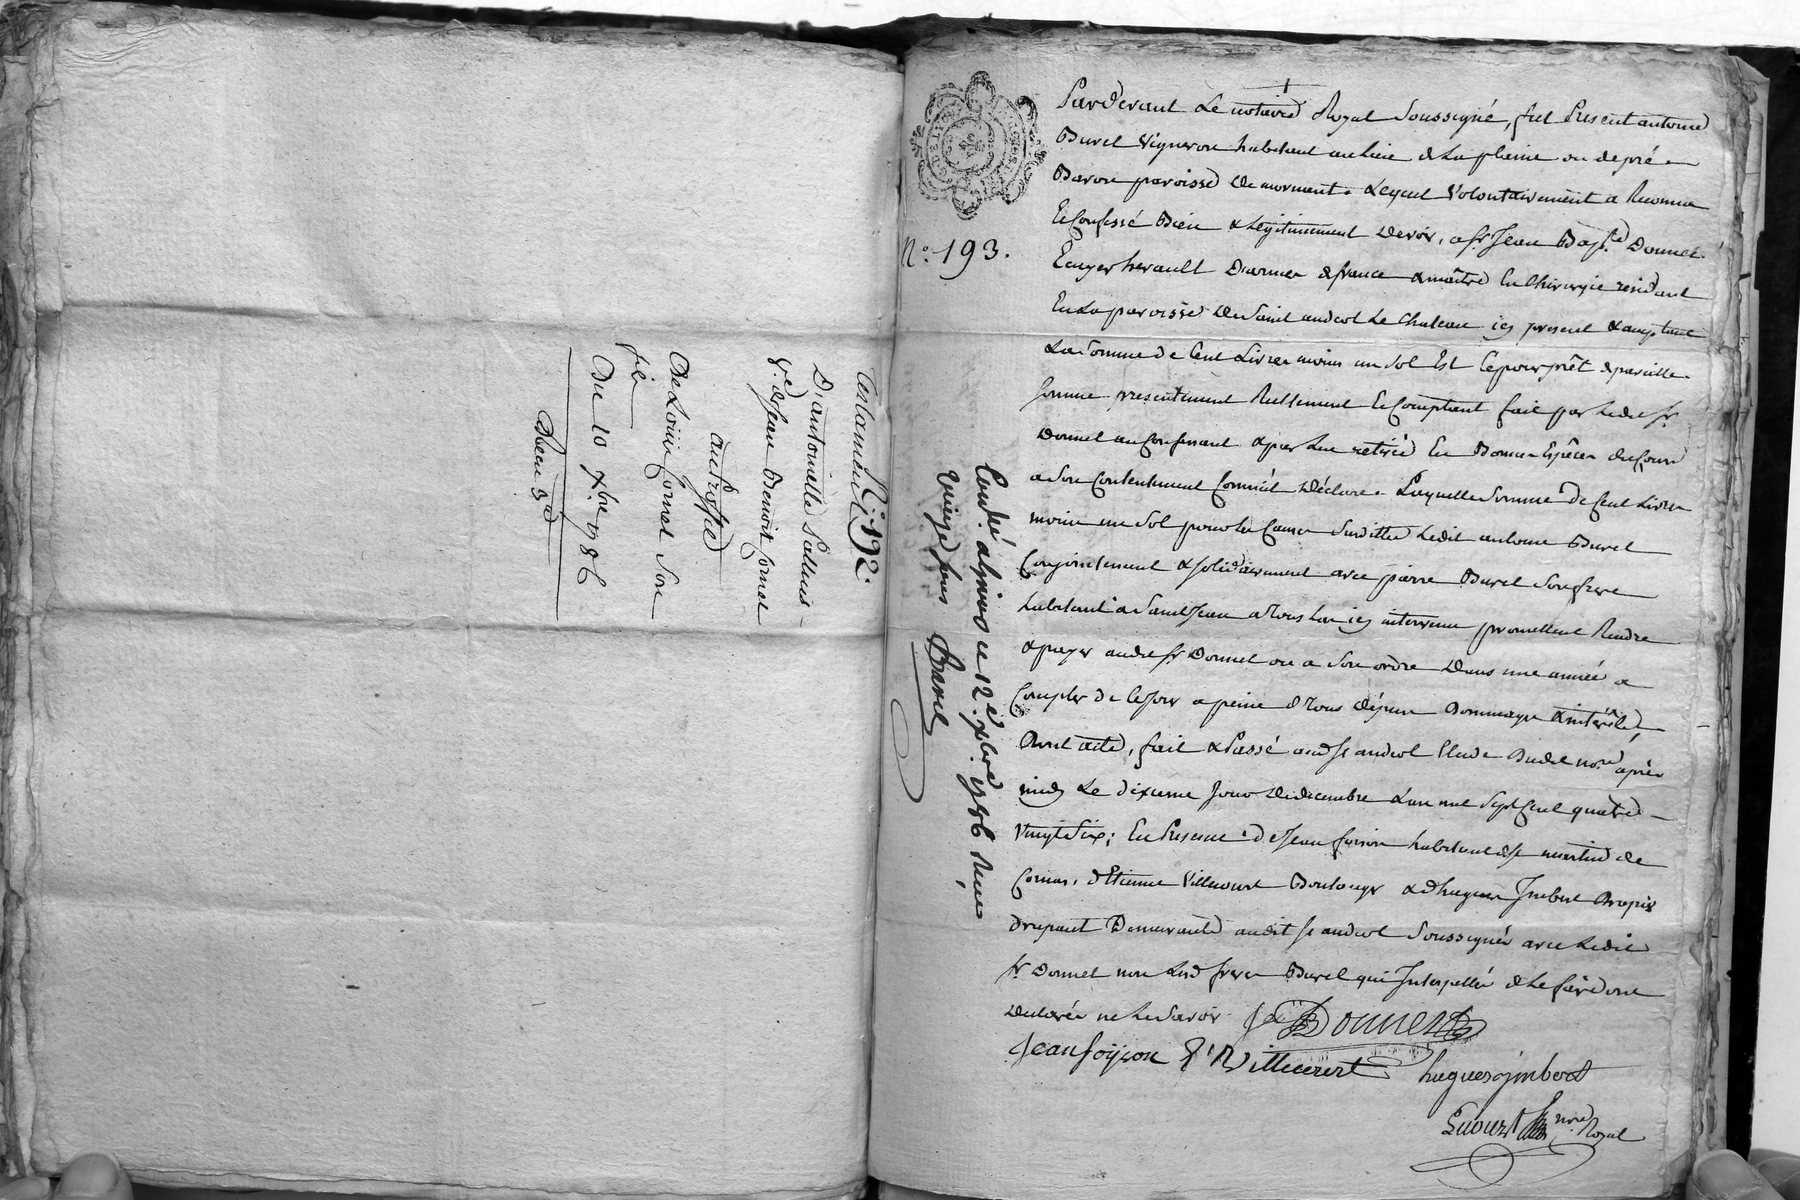 Testament N.º 192.
D'antoinette Palluis
v.e de Jean Benoit Cornet
au profit
De Louis Cornet Son
fils
Du 10 Xbre 1786
GENER DE LION
N.º 193.
Pardevant Le notaire Royal Soussigné, fut Present antoine
Burel Vigneron habitant au Lieu de La plaine ou de pré
Baron paroisse de mornant. Lequel Volontairement a Reconnu
Et Confessé Bien & Légitimement Devoir, a Sr Jean Bapt.e Donnet
Ecuyer herault D'armes de france & maitre En Chirurgie residant
En La paroisse de Saint andeol Le Chateau icy present & acceptant
La Somme de Cent Livres moins un Sol Et Ce pour prêt de pareille
Somme presentement Reellement Et Comptant fait par Ledit Sr
Donnet au Confessant & par Lui retirée En Bonnes Espèces du Cours
a Son Contentement Comme il Déclare. Laquelle Somme de Cent Livres
moins un Sol pour les Causes Susdittes Ledit antoine Burel
Conjointement & solidairement avec pierre Burel Son frere
habitant a Saint Jean a Touslas icy intervenu promettent Rendre
& payer audit Sr Donnet ou a Son ordre Dans une année a
Compter de Ce Jour a peine de Tous dépens Dommages & intérêts,
Dont acte, fait & Passé audit St andeol Etude Dudit no.re après
midy Le dixieme Jour de decembre L'an mil Sept Cent quatre
Vingt Six; En Presence de Jean foison habitant de St martin de
Cornas, d'Etienne Villecourt Boulanger & d'hugues Imbert
Demeurants audit St andeol Soussignés avec Ledit
Sr Donnet non Lesd freres Burel qui Interpellés de Le faire ont
Declarés ne Le Savoir
Donnet
Jean foison E Villecourt hugues imbert
no.re Royal
Contr.é a givors ce 12.e Xbre 1786 Reçu
quinze sous Baril